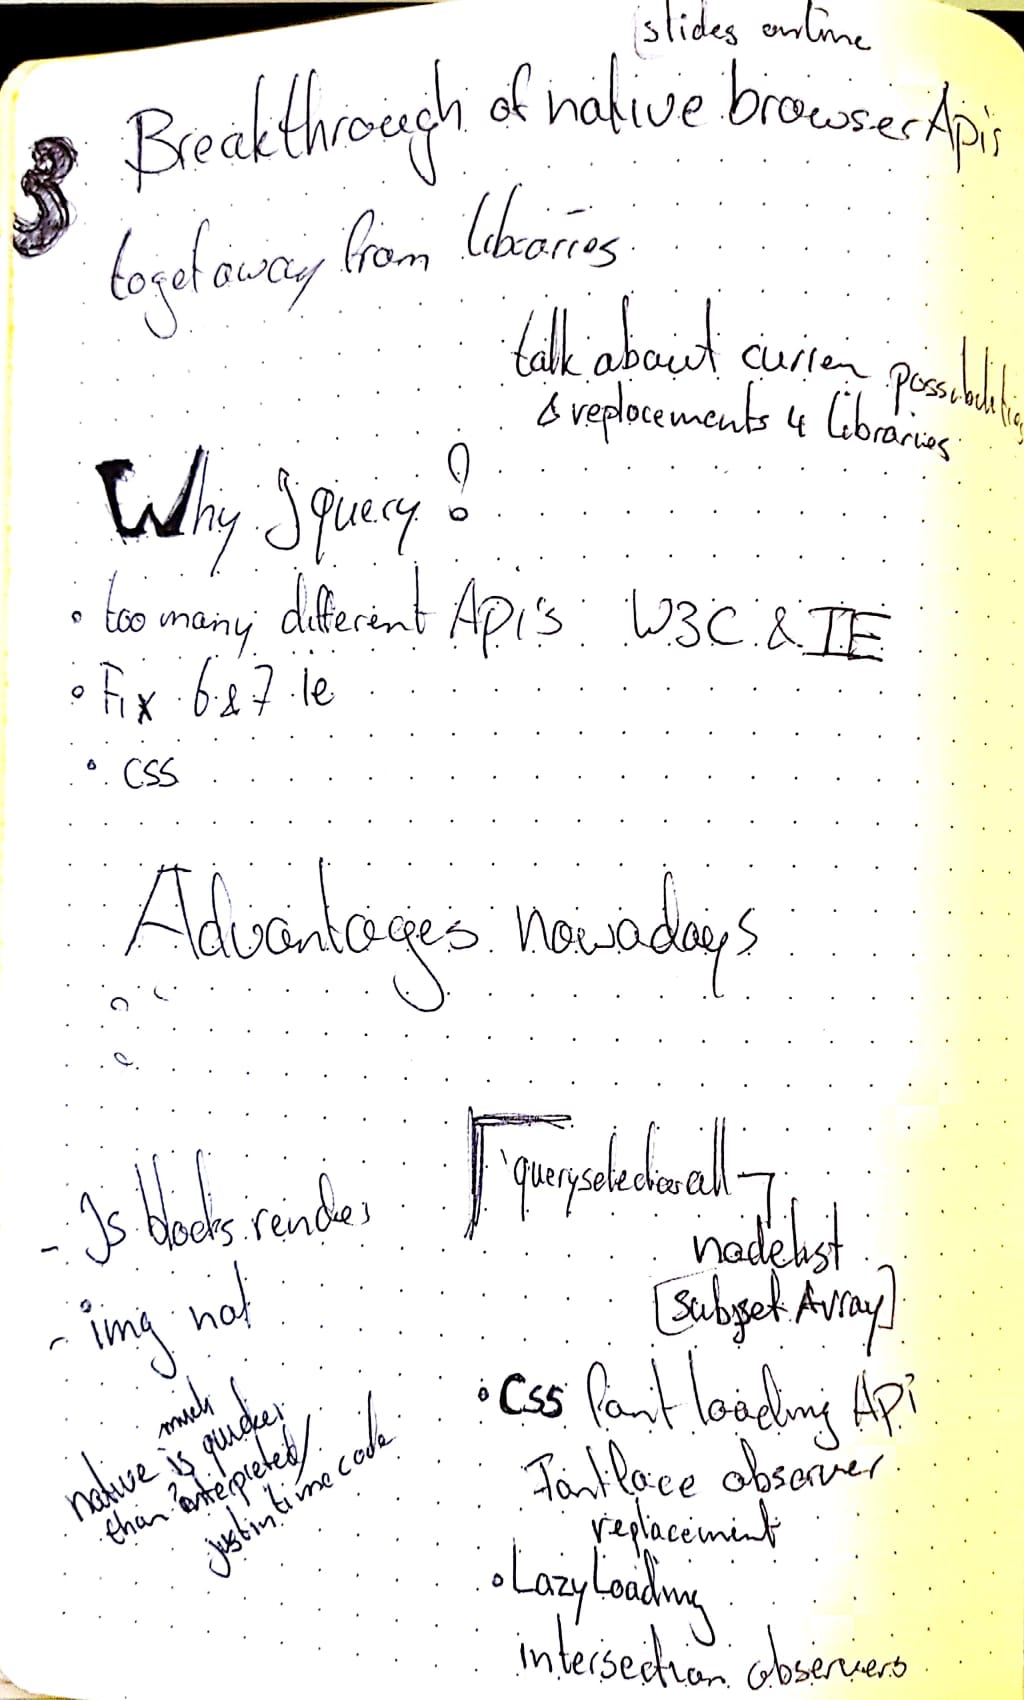 slides online
3 Breakthrough of native browser Apis
to get away from libraries
talk about curren possibilities
& replacements 4 libraries
Why Jquery?
• too many different Api's W3C & IE
• Fix 6 & 7 ie
• CSS
Advantages nowadays
- Js blocks render
- img not
native is much quicker
than interpreted/
just in time code
queryselectorall →
nodelist
[subset Array]
• CSS font loading Api
Fontface observer
replacement
• Lazy Loading
intersection observers